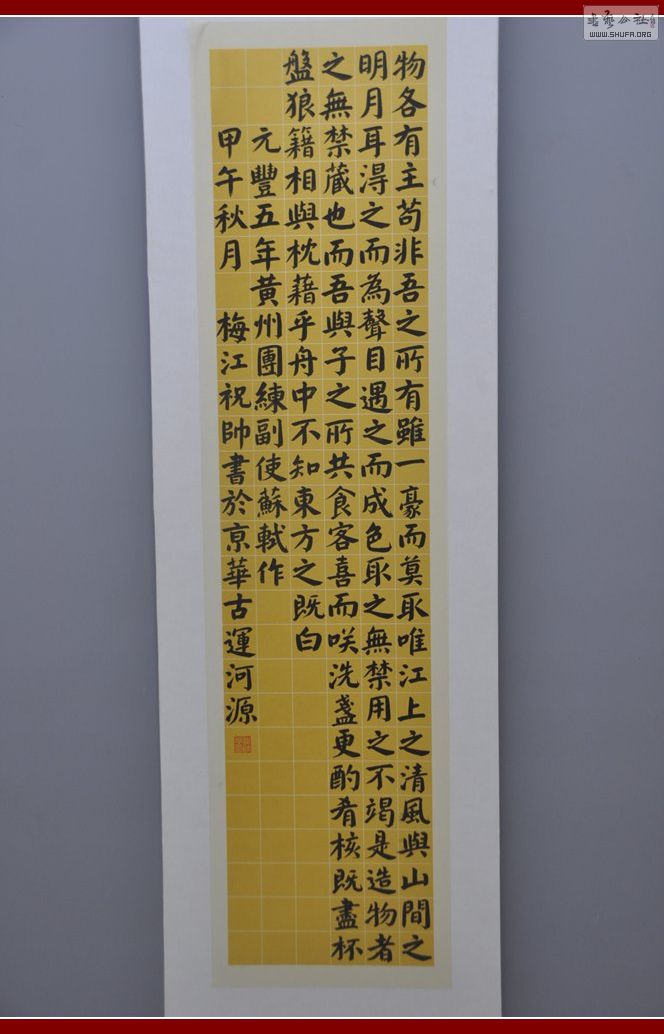 物各有主苟非吾之所有雖一豪而莫取唯江上之清風與山間之
明月耳淂之而為聲目遇之而成色取之無禁用之不竭是造物者
之無禁蔵也而吾與子之所共食客喜而咲洗盞更酌肴核既盡杯
盤狼籍相與枕藉乎舟中不知東方之既白
元豐五年黃州團練副使蘇軾作
甲午秋月 梅江祝帥書於京華古運河源
書藝公社
WWW.SHUFA.ORG